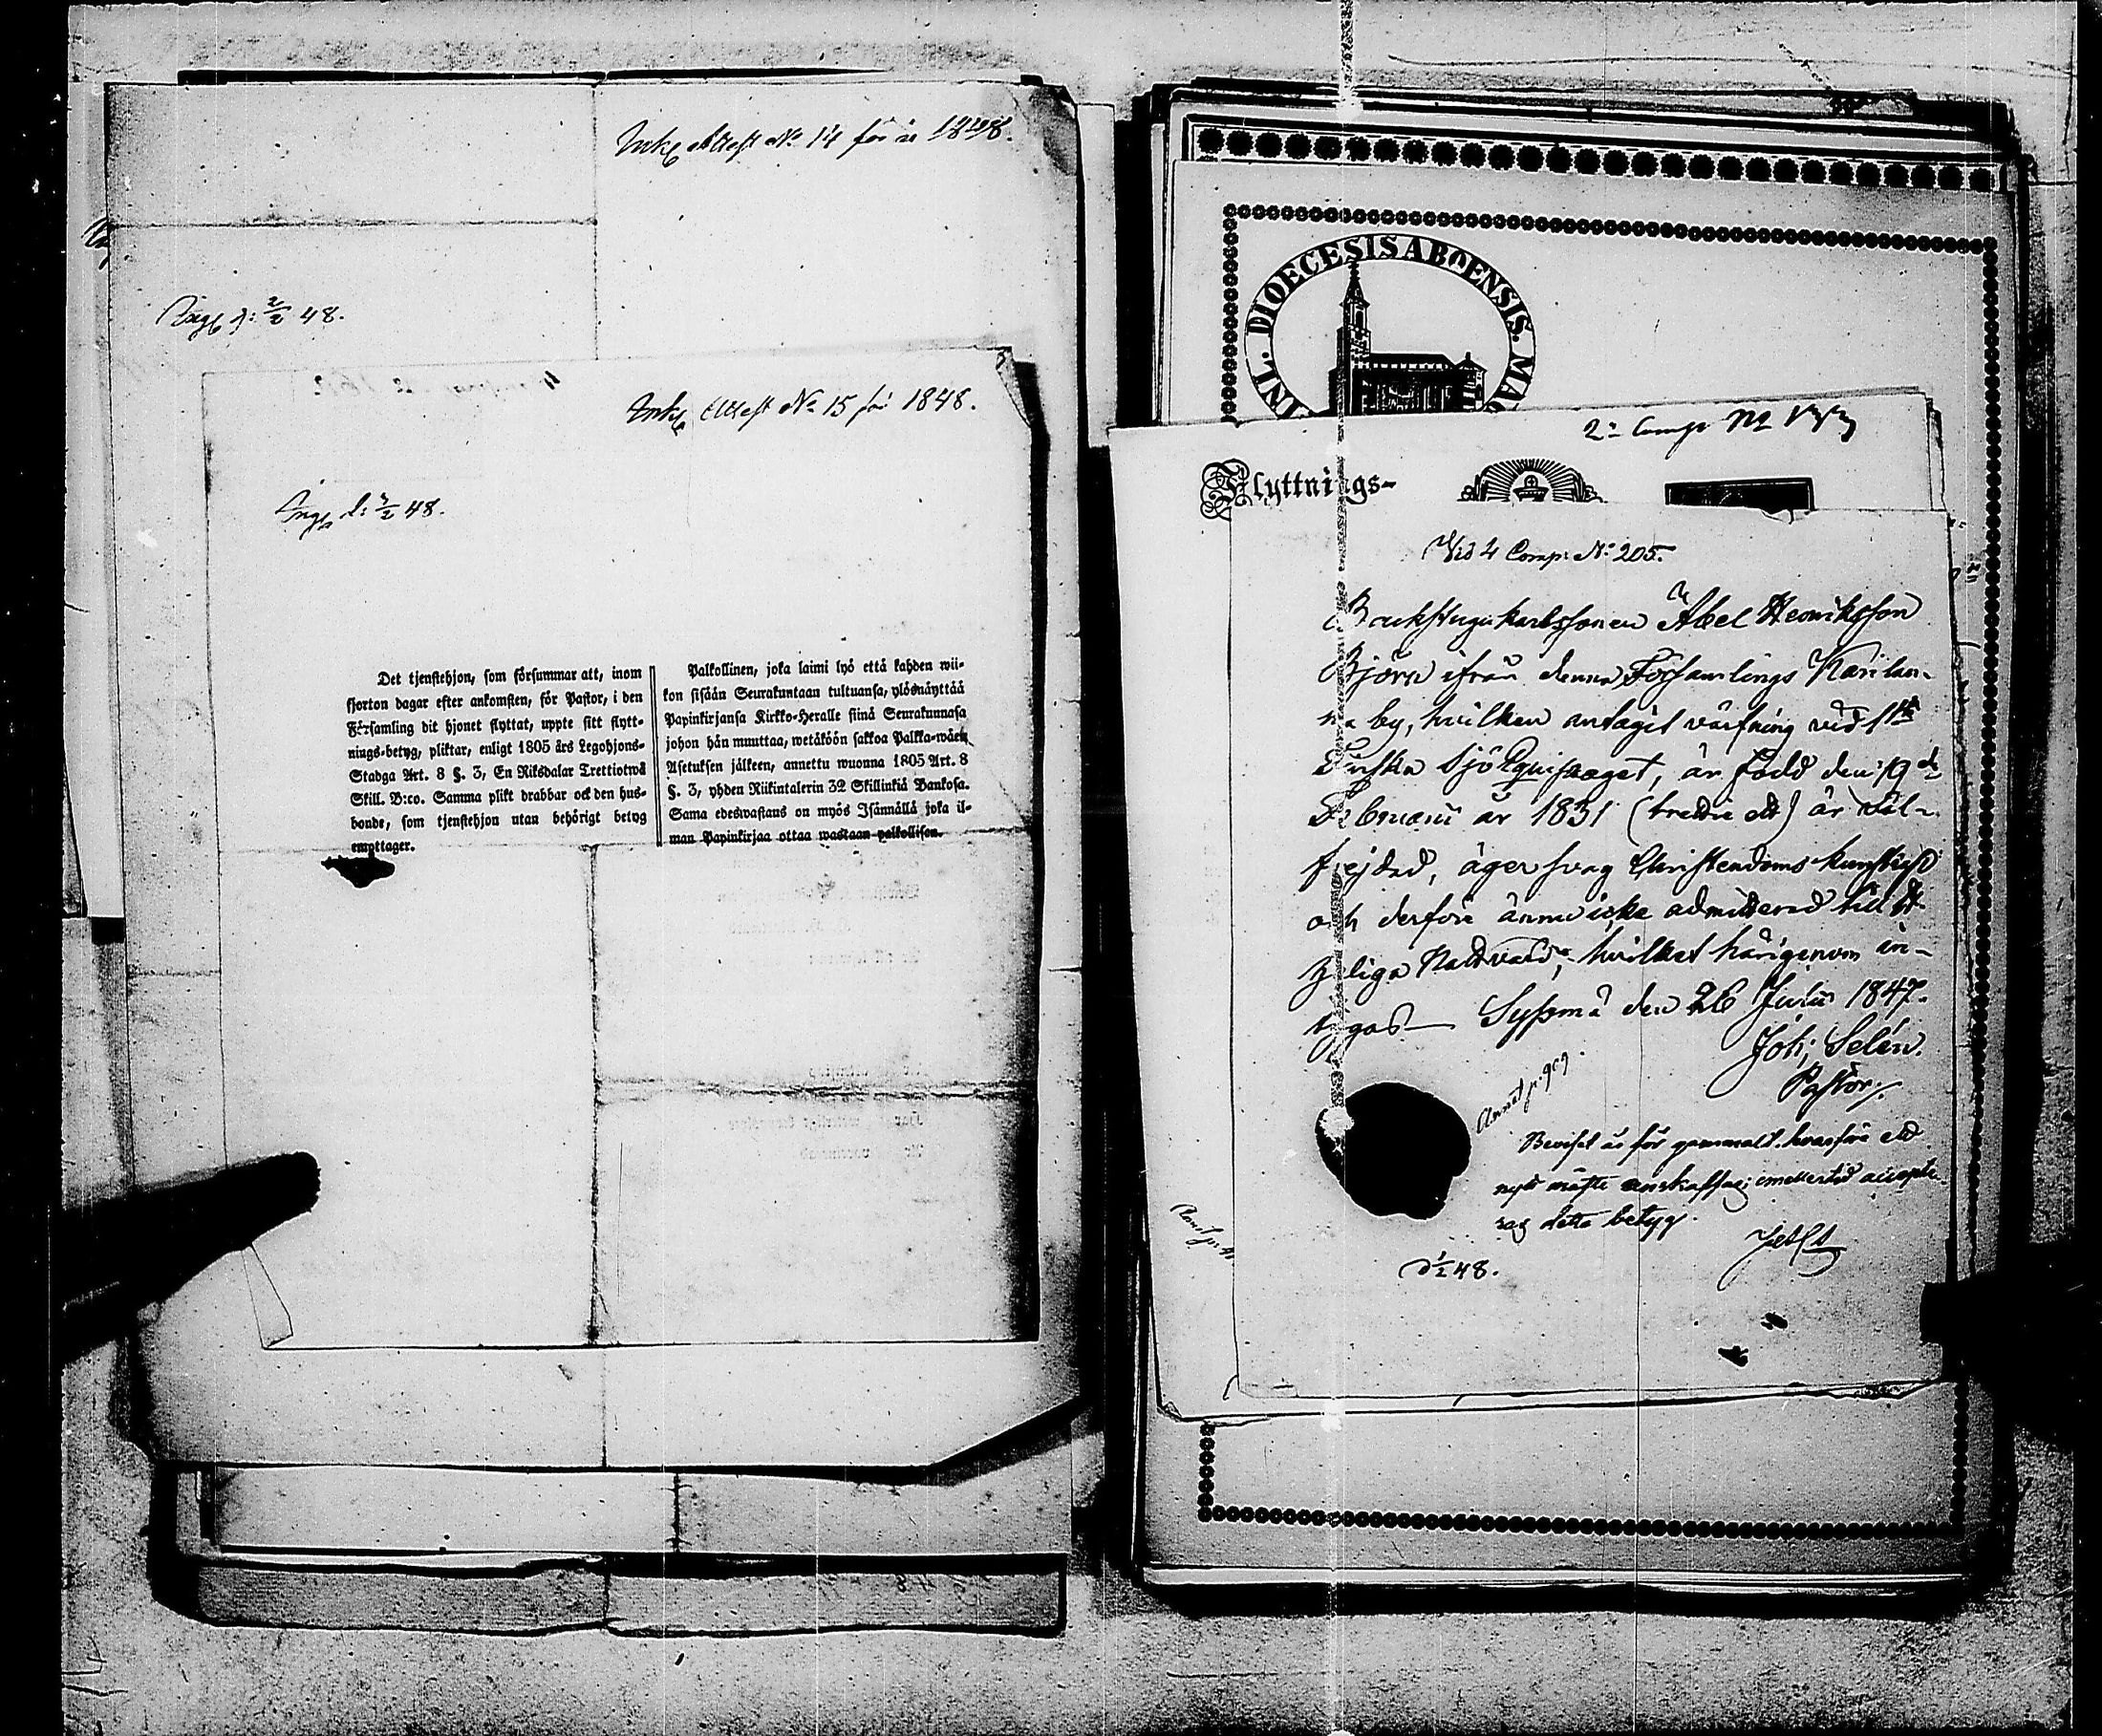 Attest No 14 för år 1848.
d: 2/2 48.
Attest No 15 för 1848.
d: 3/2 48.
Det tjenstehjon, som försummar att, inom
fjorton dagar efter ankomsten, för Pastor, i den
Församling dit hjonet flyttat, uppte sitt flytt-
nings-betyg, pliktar, enligt 1805 års Legohjons-
Stadga Art. 8 §. 3, En Riksdalar Trettiotwå
Skill. B:co. Samma plikt drabbar ock den hus-
bonde, som tjenstehjon utan behörigt betyg
emottager.
Palkollinen, joka laimi lyö että kahden wii-
kon sisään Seurakuntaan tultuansa, ylösnäyttää
Papinkirjansa Kirkko-Herralle siinä Seurakunnasa
johon hän muuttaa, wetäköön sakkoa Palkka-wäen
Asetuksen jälkeen, annettu wuonna 1805 Art. 8
§. 3, yhden Riikintalerin 32 Skillinkiä Bankosa.
Sama edeswastaus on myös Isännällä joka il-
man Papinkirjaa ottaa wastaan palkollisen.
DIOECESIS ABOENSIS. MAG
2a Comp No
Flyttnings-
Vid 4 Comp: No 205.
Backstugukarlssonen Abel Henriksson
Björn ifrån denna Församlings Karilan-
na by, hvilken antagit värfning vid 1sta
Finska Sjö Equipaget, är född den 19de
Februarii år 1831 (trettio ett) är väl-
frejdad, äger svag Christendoms kunskap
och derföre ännu icke admitterad till H.
Nattvard, hvilket härigenom in-
tygas Sysmä den 26 Julii 1847.
Joh; Selén.
Pastor.
Beviset är för gammalt, hvarföre ett
nytt måste anskaffas; emellertid accepte-
ras detta betyg.
d 1/2 48.